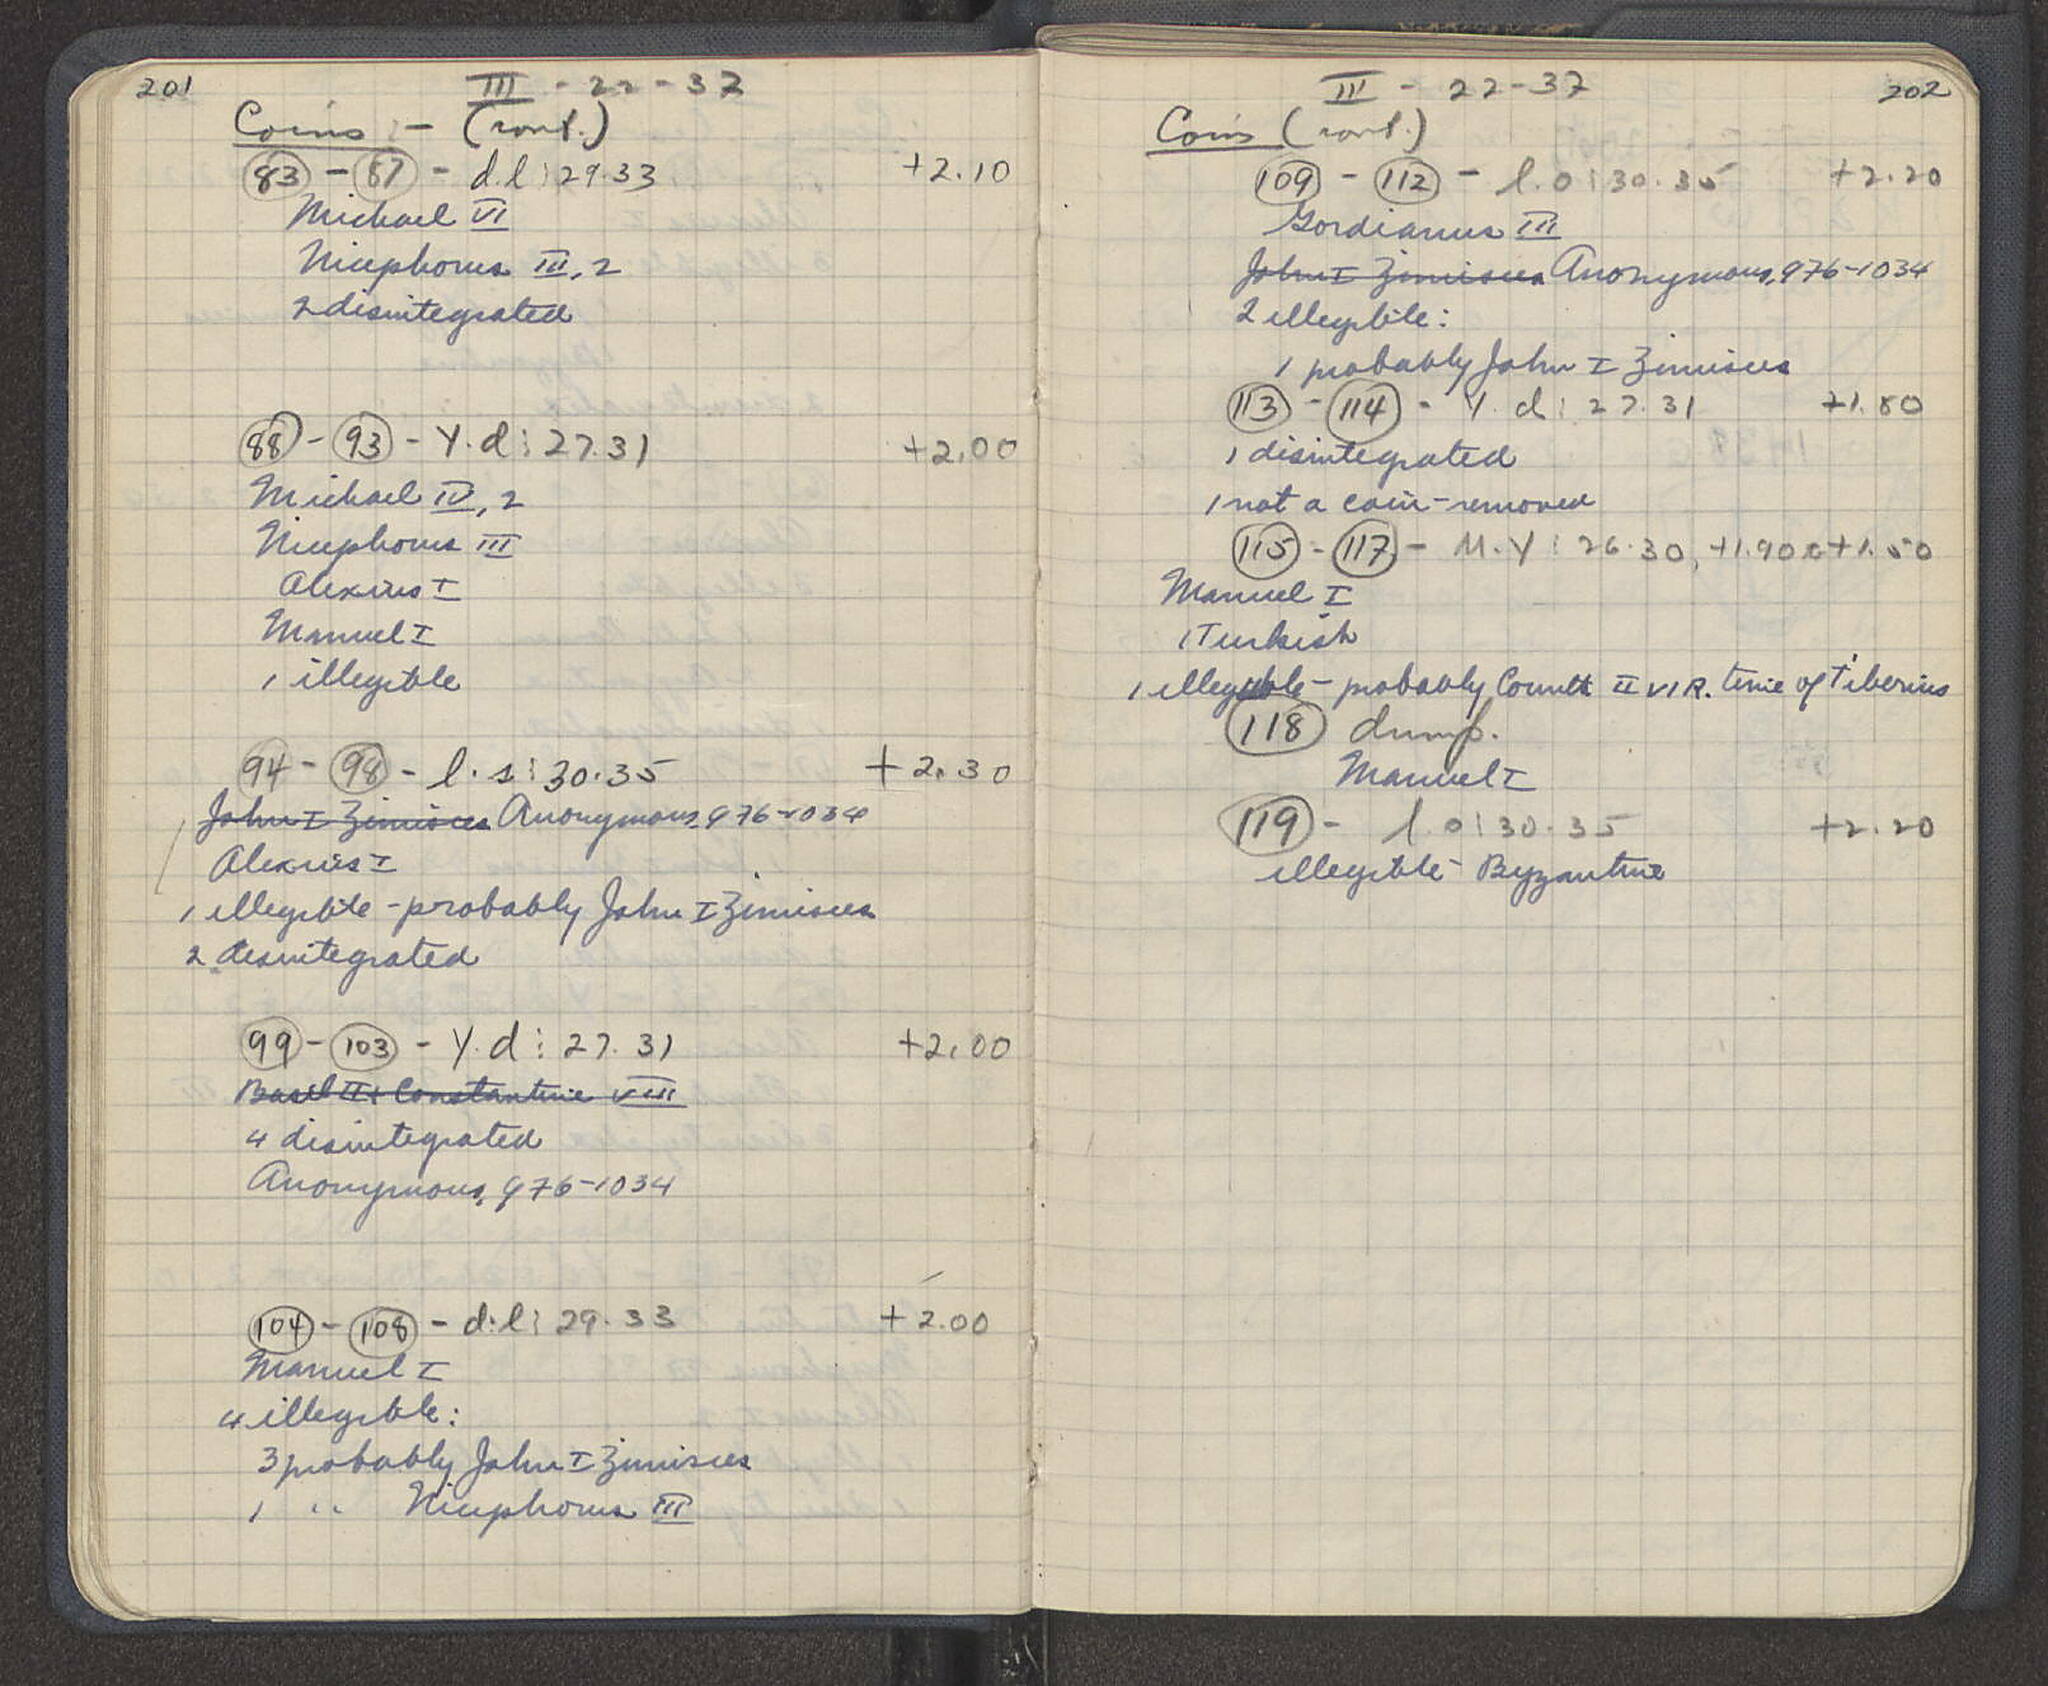 201
III - 22 - 37
Coins :- (cont.)
83 - 87 - d.l : 29.33 +2.10
Michael VI
Nicephorus III, 2
2 disintegrated
88 - 93 - Y.d : 27.31 +2.00
Michael IV, 2
Nicephorus III
Alexius I
Manuel I
1 illegible
94 - 98 - l.s : 30.35 +2.30
John I Zimisces Anonymous, 976-1034
Alexius I
1 illegible - probably John I Zimisces
2 disintegrated
99 - 103 - Y.d : 27.31 +2.00
Basil II + Constantine VIII
4 disintegrated
Anonymous, 976-1034
104 - 108 - d.l : 29.33 +2.00
Manuel I
4 illegible :
3 probably John I Zimisces
1 " Nicephorus III
III - 22-37
202
Coins (cont.)
109 - 112 - l.o : 30.35 +2.20
Gordianus III
John I Zimisces Anonymous, 976-1034
2 illegible :
1 probably John I Zimisces
113 - 114 - Y.d : 27.31 +1.80
1 disintegrated
1 not a coin - removed
115 - 117 - M.Y : 26.30, +1.90 & +1.50
Manuel I
1 Turkish
1 illegible - probably Corinth II VIR. time of Tiberius
118 dump.
Manuel I
119 - l.o : 30.35 +2.20
illegible - Byzantine